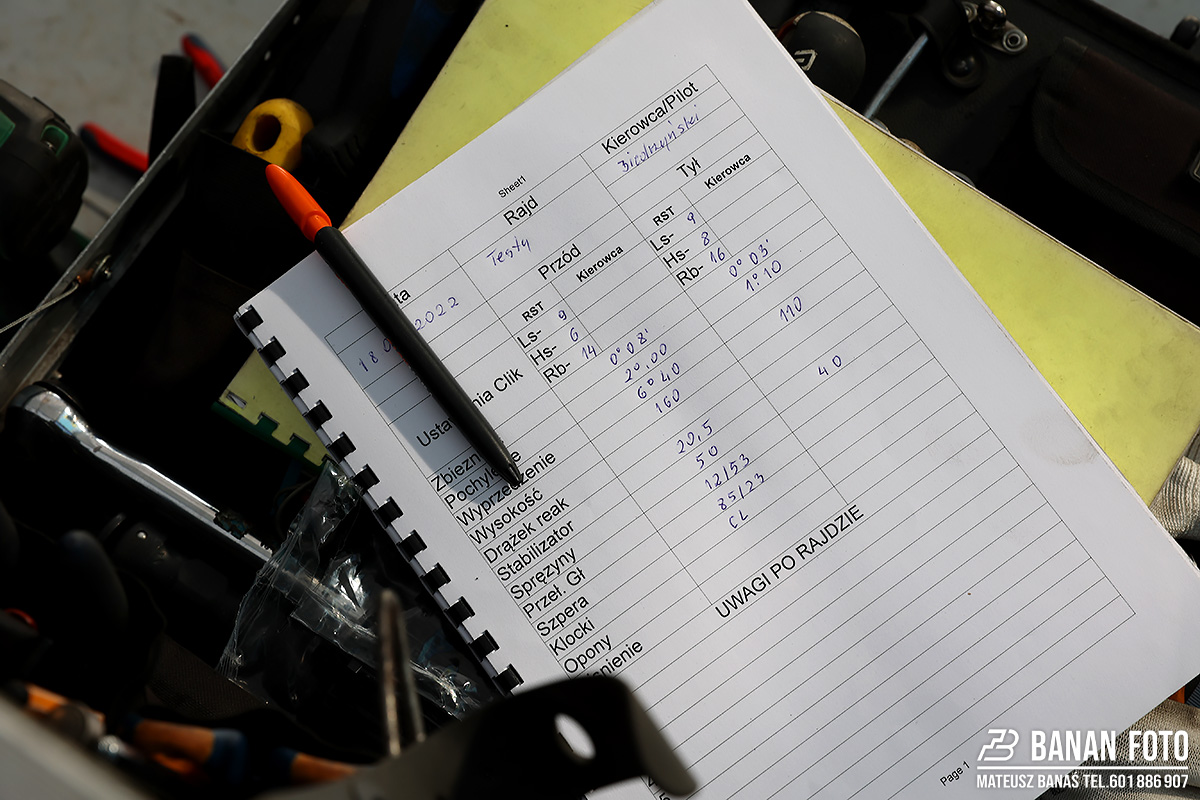 Sheet1
ta Rajd Kierowca/Pilot
18 0 2022 Testy Biedrzyński
Przód Tył
RST Kierowca RST Kierowca
Ls- 9 Ls- 9
Hs- 6 Hs- 8
Usta nia Clik Rb- 14 Rb- 16
Zbiezn 0° 08' 0° 03'
Pochylenie 2°.00 1°.10
Wyprzedzenie 6° 40
Wysokość 160 110
Drążek reak
Stabilizator 20,5 40
Sprężyny 50
Przeł. Gł 12/53
Szpera 85/23
Klocki CL
Opony
śnienie
UWAGI PO RAJDZIE
Page 1
BANAN FOTO
MATEUSZ BANAŚ TEL.601 886 907